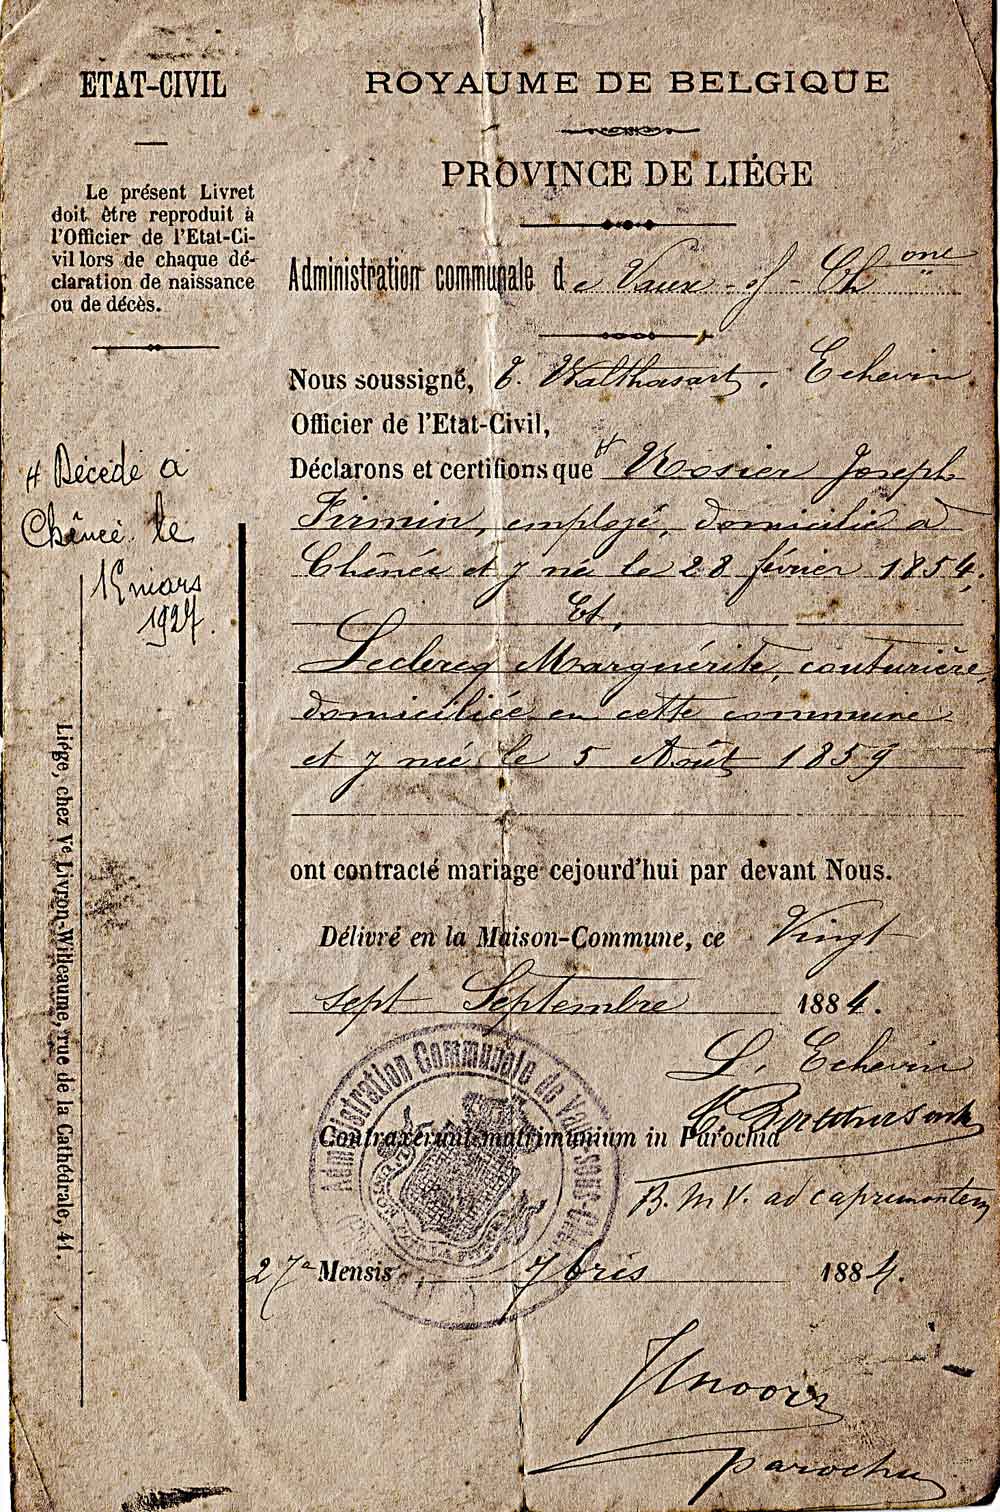 ETAT-CIVIL
Le présent Livret
doit être reproduit à
l'Officier de l'Etat-Ci-
vil lors de chaque dé-
claration de naissance
ou de décès.
ROYAUME DE BELGIQUE
PROVINCE DE LIÉGE
Administration communale de Vaux-s/-Ch
Nous soussigné, Echevin
Officier de l'Etat-Civil,
Déclarons et certifions que Rosier Joseph
Firmin, employé, domicilié à
Chênée et y né le 28 février 1854.
Et,
Leclercq Marguérite, couturière,
domiciliée en cette commune
et y née le 5 Août 1859
ont contracté mariage cejourd'hui par devant Nous.
Délivré en la Maison-Commune, ce Vingt
sept Septembre 1884.
L. Echevin
Contraxerunt matrimunium in Parochia
B. M. V. ad capremontem
27a Mensis 7bris 1884.
parochus
Administration Communale de Vaux-sous-
# Décédé à
Chênée le
mars
1927.
Liége, chez Ve Livron-Willeaume, rue de la Cathédrale, 41.